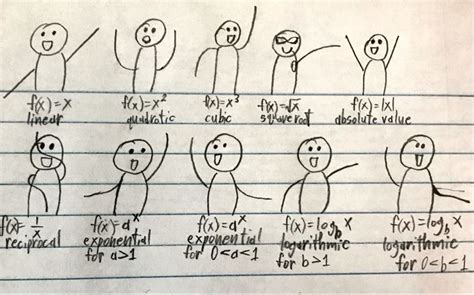 f(x)=x
linear
f(x)=x²
quadratic
f(x)=x³
cubic
f(x)=√x
square root
f(x)=|x|
absolute value
f(x)=1/x
reciprocal
f(x)=aˣ
exponential
for a>1
f(x)=aˣ
exponential
for 0<a<1
f(x)=log_b x
logarithmic
for b>1
f(x)=log_b x
logarithmic
for 0<b<1